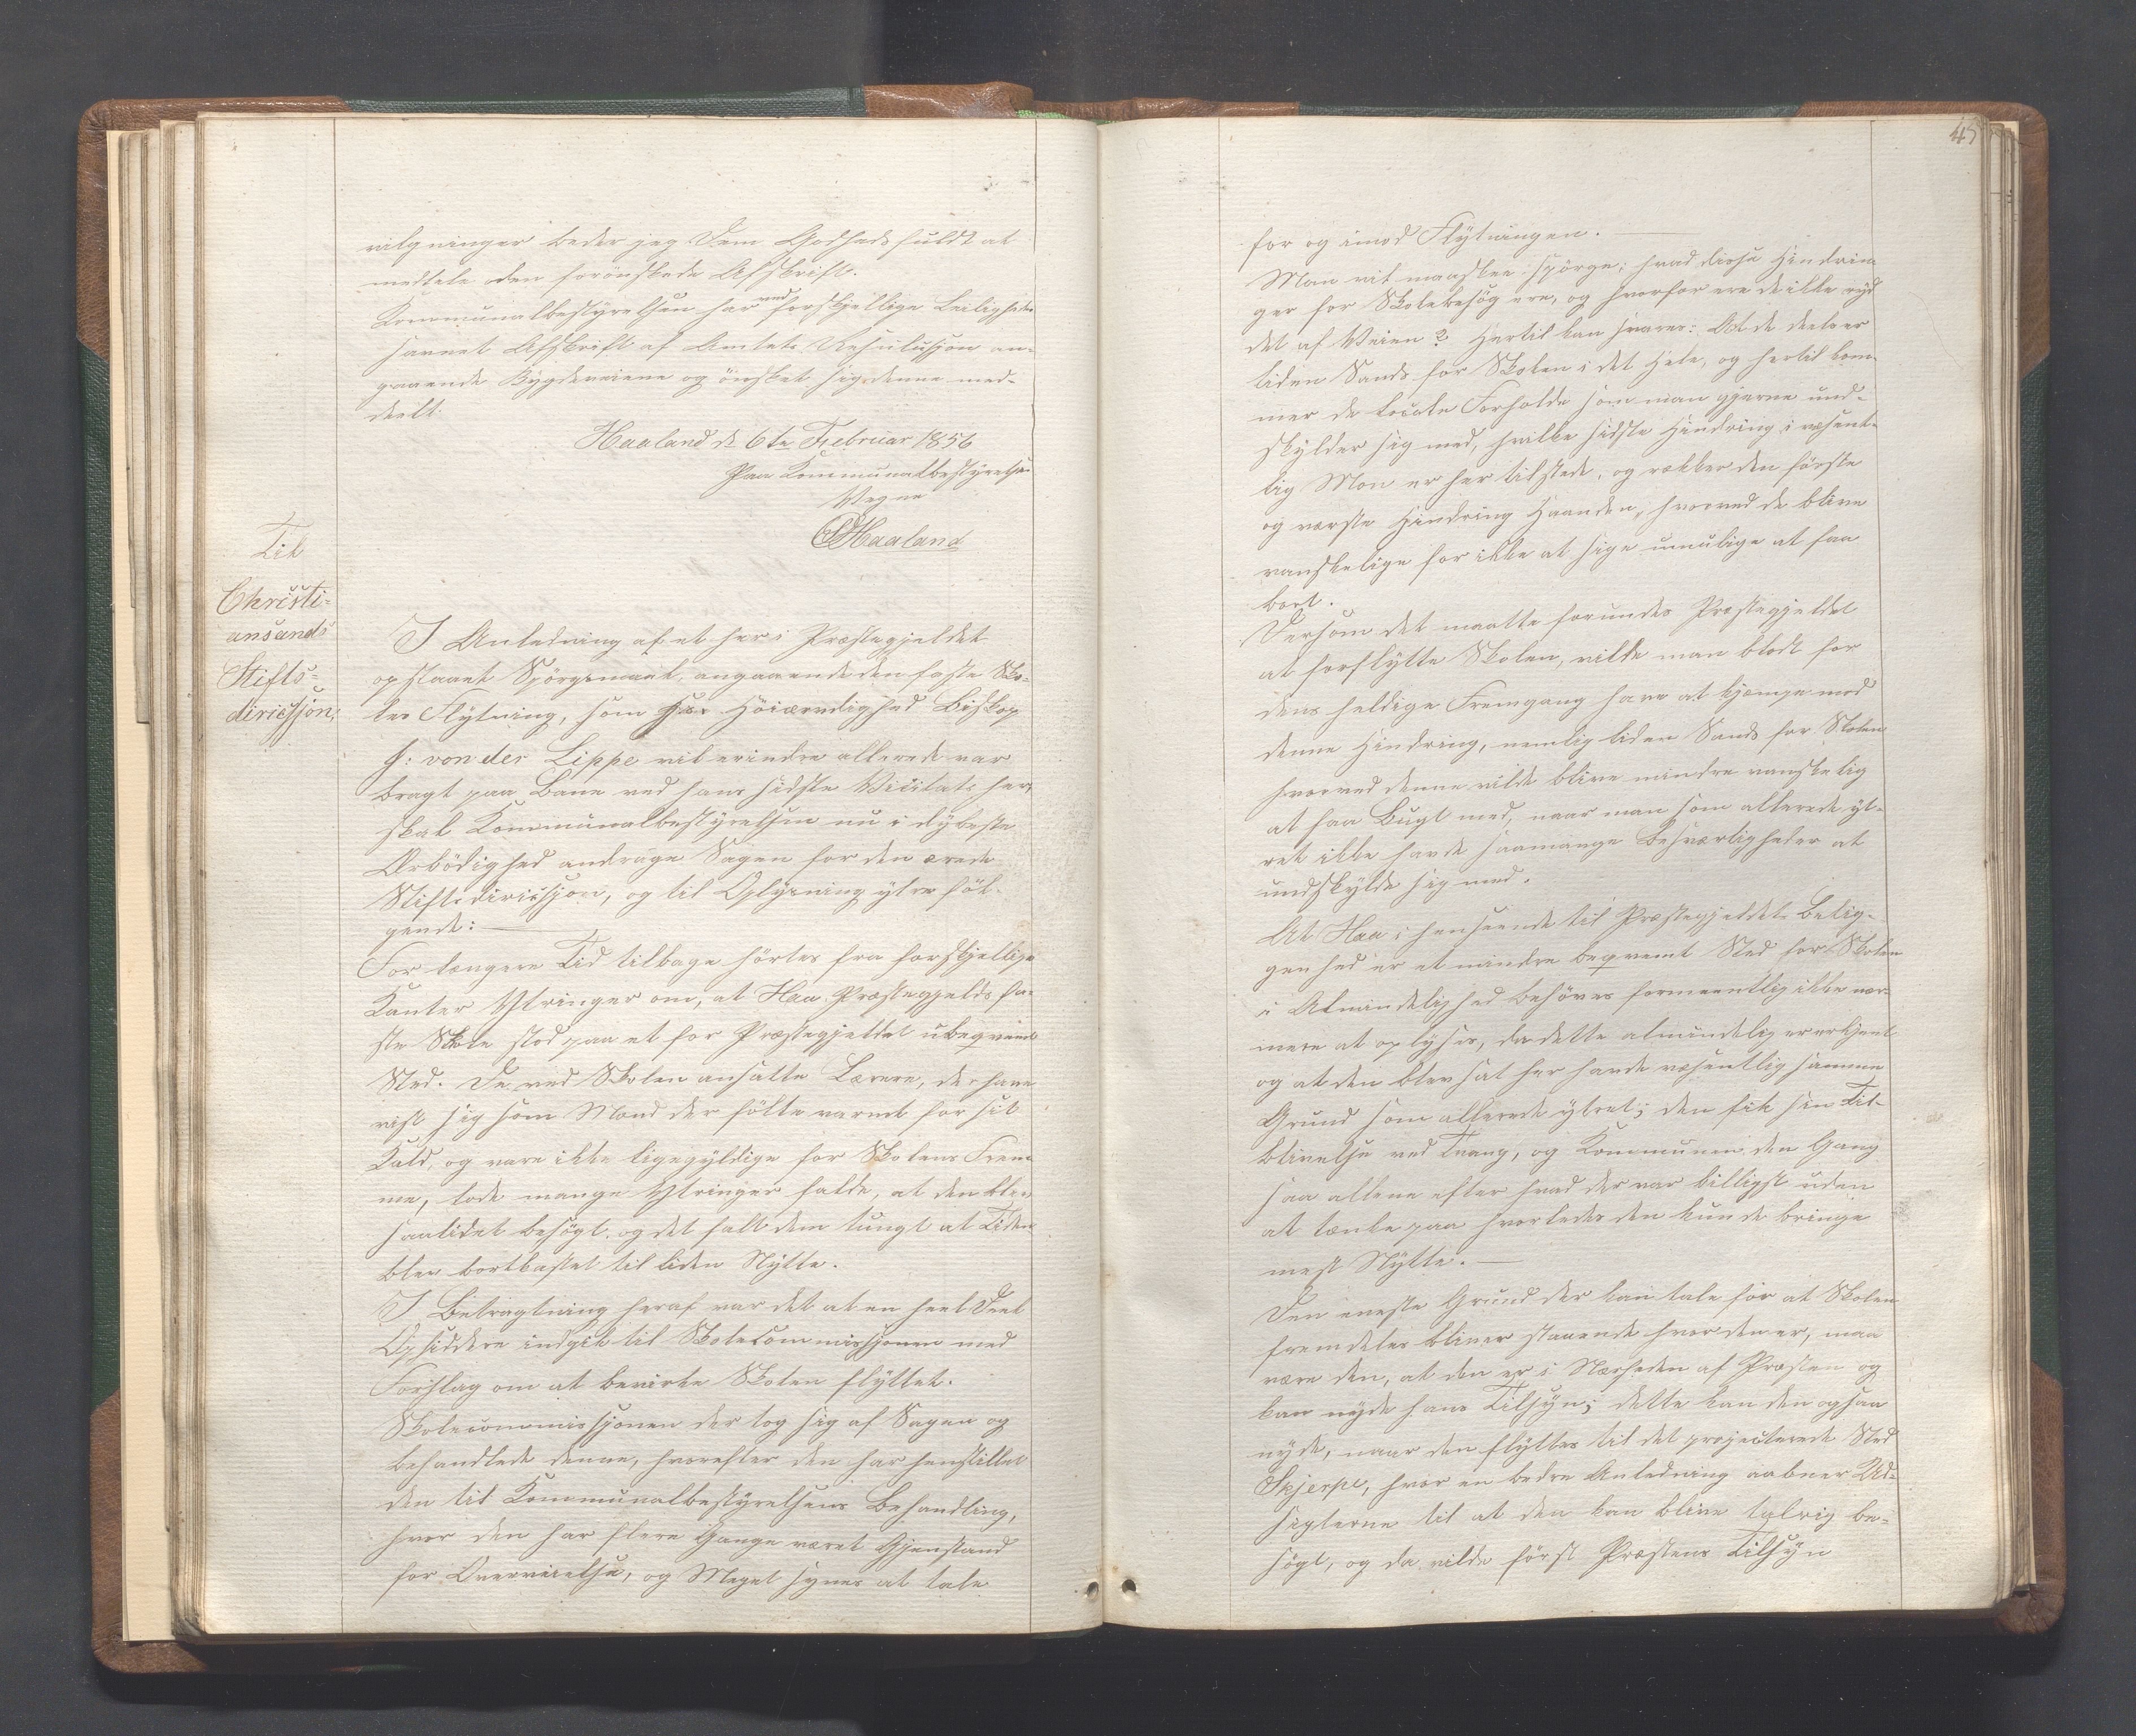 vilgninger beder jeg Dem Godhedsfuldt at
meddele den forönskede Afskrift.
Kommunalbestyrelsen har ved forskjellige Leiligheder
savnet Afskrift af Amtets Resulusjon an-
gaaende Bygdeveiene og önsket sig denne med-
delt.
Haaland d 6te Februar 1856
Paa Kommunalbestyrelsens
Vegne
Haaland
Til
Christi-
ansands
Stifts-
diricsjon,
I Anledning af et her i Præstegjeldet
opstaaet Spörgsmaal, angaaende den faste Sko-
les Flytning, som Hs. Höiærværdighed Biskop
J: von der Lippe vil erindre allerede var
bragt paa Bane ved hans sidste Visitats her,
skal Kommunalbestyrelsen nu i dybeste
Ærbödighed andrage Sagen for den ærede
Stiftsdiricsjon, og til Oplysning ytre föl-
gende:
For længere Tid tilbage hörtes fra forskjellige
Kanter Ytringer om, at Haa Præstegjelds fa-
ste Skole stod paa et for Præstegjeldet ubeqvemt
Sted. De ved Skolen ansatte Lærere, der have
vist sig som Mænd der fölte varmt for sit
Kald, og vare ikke ligegyldige for Skolens Frem-
me, lode mange Ytringer falde, at den blev
saalidet besögt og det falt dem tungt at Tiden
blev bortkastet til liden Nytte.
I Betragtning heraf var det at en heel Deel
Opsiddere indgik til Skolecommissjonen med
Forslag om at bevirke Skolen flyttet.
Skolecommissjonen der tog sig af Sagen og
behandlede denne, hvorefter den har henstillet
den til Kommunalbestyrelsens Behandling,
hvor den har flere Gange været Gjenstand
for Overveielse, og Meget synes at tale
45
for og imod Flytningen.
Man vil maaskee spörge: hvad disse Hindrin-
ger for Skolebesög ere, og hvorfor ere de ikke ryd-
det af Veien? Hertil kan svares: At de deels er
liden Sands for Skolen i det Hele, og hertil kom-
mer de locale Forholde som man gjerne und-
skylder sig med, hvilke sidste Hindring i væsent-
lig Mon er her tilstede, og rækker den förste
og værste Hindring Haanden, hvorved de blive
vanskelige for ikke at sige umulige at faa
bort.
Dersom det maatte forundes Præstegjeldet
at forflytte Skolen, vilde man blodt for
dens heldige Fremgang have at kjæmpe mod
denne Hindring, nemlig liden Sands for Skolen
hvorved denne vilde blive mindre vanskelig
at faa Bugt med, naar man som allerede yt-
ret ikke havde saamange Besværligheder at
undskylde sig med.
At Haa i henseende til Præstegjeldets Belig-
genhed er et mindre beqvemt Sted for Skolen
i Almindelighed behöves formeentlig ikke nær-
mere at oplyses, da dette almindelig er erkjent
og at den blev sat her havde væsentlig samme
Grund som allerede ytret; den fik sin Til-
blivelse ved Tvang, og Kommunen den Gang
saa allene efter hvad der var billigst uden
at tænke paa hvorledes den kunde bringe
mest Nytte.
Den eneste Grund der kan tale for at Skolen
fremdeles bliver staaende hvor den er, maa
være den, at den er i Nærheden af Præsten og
kan nyde hans Tilsyn; dette kan den ogsaa
nyde, naar den flyttes til det projecterede Sted
Skjerpe, hvor en bedre Anledning aabner Ud-
sigterne til at den kan blive talrig be-
sögt, og da vilde först Præstens Tilsyn